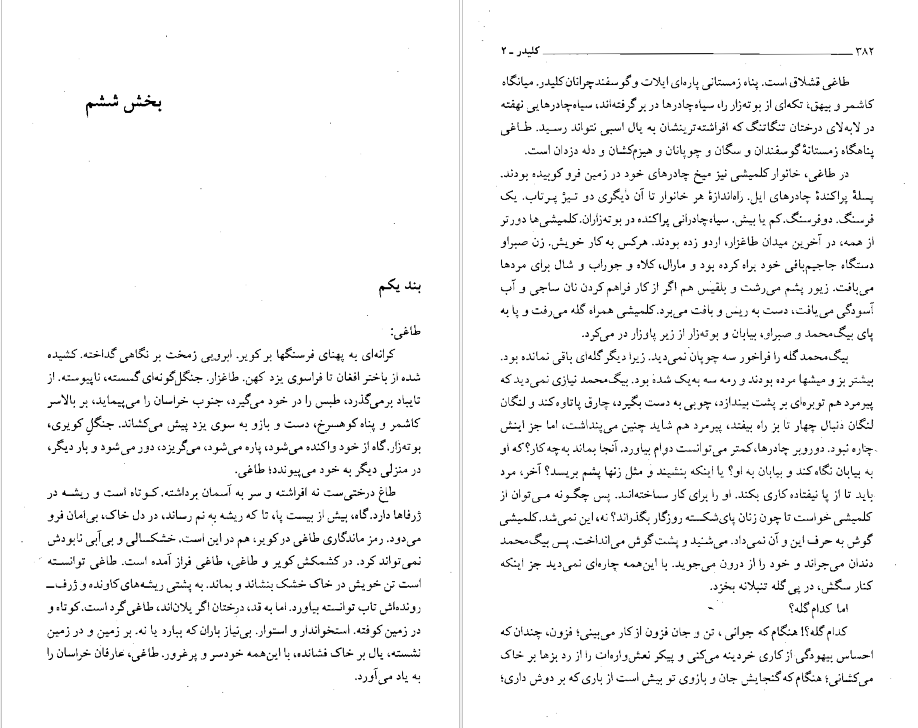 بخش ششم
بند یکم
طاغی:
کرانه‌ای به پهنای فرسنگها بر کویر. ابرویی زمخت بر نگاهی گداخته. کشیده
شده از باختر افغان تا فراسوی یزد کهن. طاغزار. جنگل‌گونه‌ای گسسته، ناپیوسته. از
تایباد برمی‌گذرد، طبس را در خود می‌گیرد، جنوب خراسان را می‌پیماید، بر بالاسر
کاشمر و پناه کوهسرخ، دست و بازو به سوی یزد پیش می‌کشاند. جنگلِ کویری،
بوته‌زار. گاه از خود واکنده می‌شود، پاره می‌شود، می‌گریزد، دور می‌شود و بار دیگر،
در منزلی دیگر به خود می‌پیوندد؛ طاغی.
طاغ درختی‌ست نه افراشته و سر به آسمان برداشته. کوتاه است و ریشه در
ژرفاها دارد. گاه، بیش از بیست پا، تا که ریشه به نم رساند، در دل خاک، بی‌امان فرو
می‌دود. رمز ماندگاری طاغی در کویر، هم در این است. خشکسالی و بی‌آبی نابودش
نمی‌تواند کرد. در کشمکش کویر و طاغی، طاغی فراز آمده است. طاغی توانسته
است تن خویش در خاک خشک بنشاند و بماند. به پشتی ریشه‌های کاونده و ژرف‌ـ
رونده‌اش تاب توانسته بیاورد. اما به قد، درختان اگر یلان‌اند، طاغی گرد است. کوتاه و
در زمین کوفته. استخواندار و استوار. بی‌نیاز باران که ببارد یا نه. بر زمین و در زمین
نشسته، یال بر خاک فشانده، با این‌همه خودسر و پرغرور. طاغی، عارفان خراسان را
به یاد می‌آورد.
۳۸۲ ــــــــــ کلیدر ـ ۲
طاغی قشلاق است. پناه زمستانی پاره‌ای ایلات و گوسفندچرانان کلیدر. میانگاه
کاشمر و بیهق، تکه‌ای از بوته‌زار را، سیاه‌چادرها در بر گرفته‌اند، سیاه‌چادرهایی نهفته
در لابه‌لای درختان تنگاتنگ که افراشته‌ترینشان به یال اسبی نتواند رسید. طاغی
پناهگاه زمستانهٔ گوسفندان و سگان و چوپانان و هیزم‌کشان و دله دزدان است.
در طاغی، خانوار کلمیشی نیز میخ چادرهای خود در زمین فرو کوبیده بودند.
پسلهٔ پراکندهٔ چادرهای ایل. راه‌اندازهٔ هر خانوار تا آن دیگری دو تیژ پرتاب. یک
فرسنگ. دو فرسنگ. کم یا بیش. سیاه‌چادرانی پراکنده در بوته‌زاران. کلمیشی‌ها دورتر
از همه، در آخرین میدان طاغزار، اردو زده بودند. هرکس به کار خویش. زن صبراو
دستگاه جاجیم‌بافی خود براه کرده بود و مارال، کلاه و جوراب و شال برای مردها
می‌بافت. زیور پشم می‌رشت و بلقیس هم اگر از کار فراهم کردن نان ساجی و آب
آسودگی می‌یافت، دست به ریس و بافت می‌برد. کلمیشی همراه گله می‌رفت و پا به
پای بیگ‌محمد و صبراو، بیابان و بوته‌زار از زیر پاوزار در می‌کرد.
بیگ‌محمد گله را فراخور سه چوپان نمی‌دید. زیرا دیگر گله‌ای باقی نمانده بود.
بیشتر بز و میشها مرده بودند و رمه سه به‌یک شده بود. بیگ‌محمد نیازی نمی‌دید که
پیرمرد هم توبره‌ای بر پشت بیندازد، چوبی به دست بگیرد، چارق پاتاوه‌کند و لنگان
لنگان دنبال چهار تا بز راه بیفتد، پیرمرد هم شاید چنین می‌پنداشت، اما جز اینش
چاره نبود. دوروبر چادرها، کمتر می‌توانست دوام بیاورد. آنجا بماند به‌چه‌کار؟ که او
به بیابان نگاه کند و بیابان به او؟ یا اینکه بنشیند و مثل زنها پشم بریسد؟ آخر، مرد
باید تا از پا نیفتاده کاری بکند. او را برای کار ساخته‌اند. پس چگونه می‌توان از
کلمیشی خواست تا چون زنان پای‌شکسته روزگار بگذراند؟ نه، این نمی‌شد. کلمیشی
گوش به حرف این و آن نمی‌داد. می‌شنید و پشت گوش می‌انداخت. پس بیگ‌محمد
دندان می‌جراند و خود را از درون می‌جوید. با این‌همه چاره‌ای نمی‌دید جز اینکه
کنار سگش، در پی گله تنبلانه بخزد.
اما کدام گله؟
کدام گله؟! هنگام که جوانی، تن و جان فزون از کار می‌بینی؛ فزون، چندان که
احساس بیهودگی از کاری خردینه می‌کنی و پیکر نعش‌واره‌ات را از رد بزها بر خاک
می‌کشانی؛ هنگام که گنجایش جان و بازوی تو بیش است از باری که بر دوش داری؛